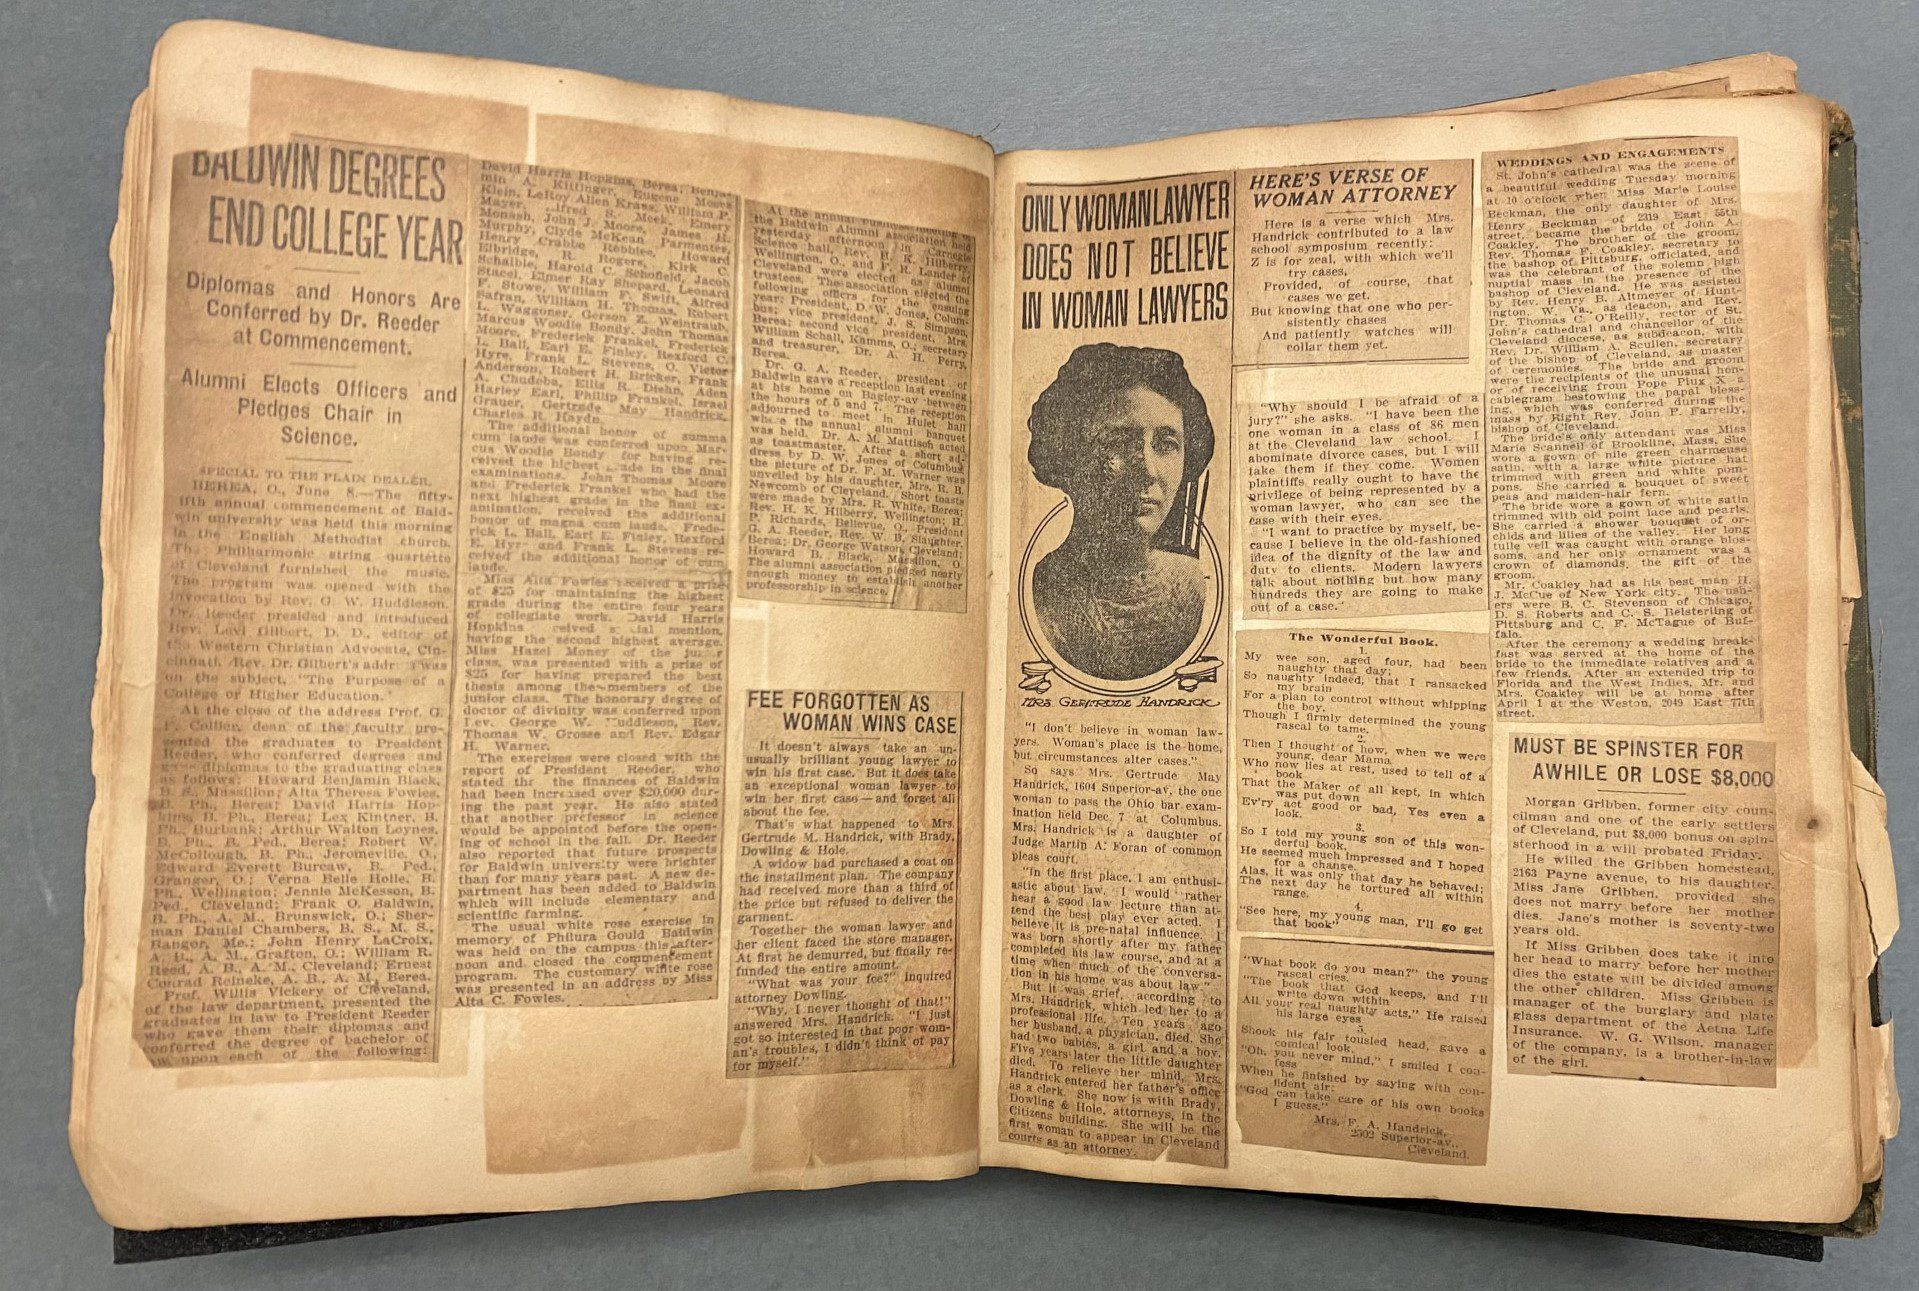 BALDWIN DEGREES
END COLLEGE YEAR
Diplomas and Honors Are
Conferred by Dr. Reeder
at Commencement.
Alumni Elects Officers and
Pledges Chair in
Science.
SPECIAL TO THE PLAIN DEALER.
BEREA, O., June 8.—The fifty-
fifth annual commencement of Bald-
win university was held this morning
in the English Methodist church.
The Philharmonic string quartette
of Cleveland furnished the music.
The program was opened with the
invocation by Rev. G. W. Huddleson.
Dr. Reeder presided and introduced
Rev. Levi Gilbert, D. D., editor of
the Western Christian Advocate, Cin-
cinnati. Rev. Dr. Gilbert's addr was
on the subject, "The Purpose of a
College or Higher Education."
At the close of the address Prof. G.
F. Collier, dean of the faculty pre-
sented the graduates to President
Reeder, who conferred degrees and
gave diplomas to the graduating class
as follows: Howard Benjamin Black,
B. S., Massillon; Alta Theresa Fowles,
B. Ph., Berea; David Harris Hop-
kins, B. Ph., Berea; Lex Kintner, B.
Ph., Burbank; Arthur Walton Loynes,
B. Ph., B. Ped., Berea; Robert W.
McCollough, B. Ph., Jeromeville, O.,
Edward Everett Burcaw, B. Ped.,
Granger, O.; Verna Belle Holle, B.
Ph., Wellington; Jennie McKesson, B.
Ped., Cleveland; Frank O. Baldwin,
B. Ph., A. M., Brunswick, O.; Sher-
man Daniel Chambers, B. S., M. S.,
Bangor, Me.; John Henry LaCroix,
A. B., A. M., Grafton, O.; William R.
Reed, A. B., A. M., Cleveland; Ernest
Conrad Reineke, A. B., A. M., Berea.
Prof. Willis Vickery of Cleveland,
of the law department, presented the
graduates in law to President Reeder
who gave them their diplomas and
conferred the degree of bachelor of
law upon each of the following:
David Harris Hopkins, Berea; Benja-
min A. Kittinger, Eugene Moses
Klein, LeRoy Allen Krass, William P.
Mayer, Alfred S. Meek, Emery
Monash, John J. Moore, James H.
Murphy, Clyde McKean Parmenter,
Henry Crabbe Robblee, Kirk C.
Elbridge, R. Rogers, Howard
Schaible, Harold C. Schofield, Jacob
Stacel, Elmer Ray Shepard, Leonard
F. Stowe, William F. Swift, Alfred
Safran, William H. Thomas, Robert
L. Waggoner, Gerson Z. Weintraub,
Marcus Woodle Bondy, John Thomas
Moore, Frederick Frankel, Frederick
L. Ball, Earl E. Finley, Rexford C.
Hyre, Frank L. Stevens, O. Victor
Anderson, Robert H. Bricker, Frank
A. Chudoba, Ellis R. Diehm, Aden
Harley Earl, Phillip Frankel, Israel
Grauer, Gertrude May Handrick,
Charles R. Haydn.
The additional honor of summa
cum laude was conferred upon Mar-
cus Woodle Bondy for having re-
ceived the highest grade in the final
examinations. John Thomas Moore
and Frederick Frankel who had the
next highest grade in the final ex-
amination, received the additional
honor of magna cum laude. Frede-
rick L. Ball, Earl E. Finley, Rexford
C. Hyre and Frank L. Stevens re-
ceived the additional honor of cum
laude.
Miss Alta Fowles received a prize
of $25 for maintaining the highest
grade during the entire four years
of collegiate work. David Harris
Hopkins received special mention,
having the second highest average.
Miss Hazel Money of the junior
class, was presented with a prize of
$25 for having prepared the best
thesis among the members of the
junior class. The honorary degree of
doctor of divinity was conferred upon
Rev. George W. Huddleson, Rev.
Thomas W. Grosse and Rev. Edgar
H. Warner.
The exercises were closed with the
report of President Reeder, who
stated the finances of Baldwin
had been increased over $20,000 dur-
ing the past year. He also stated
that another professor in science
would be appointed before the open-
ing of school in the fall. Dr. Reeder
also reported that future prospects
for Baldwin university were brighter
than for many years past. A new de-
partment has been added to Baldwin
which will include elementary and
scientific farming.
The usual white rose exercise in
memory of Philura Gould Baldwin
was held on the campus this after-
noon and closed the commencement
program. The customary white rose
was presented in an address by Miss
Alta C. Fowles.
At the annual business meeting of
the Baldwin Alumni association held
yesterday afternoon in Carnegie
Science hall, Rev. H. K. Hilberry,
Wellington, O., and F. R. Lander of
Cleveland were elected as alumni
trustees. The association elected the
following officers for the ensuing
year: President, D. W. Jones, Colum-
bus; vice president, J. S. Simpson,
Berea; second vice president, Mrs.
William Schall, Kamms, O., secretary
and treasurer, Dr. A. H. Perry,
Berea.
Dr. G. A. Reeder, president of
Baldwin gave a reception last evening
at his home on Bagley-av between
the hours of 5 and 7. The reception
adjourned to meet in Hulet hall
where the annual alumni banquet
was held. Dr. A. M. Mattisch acted
as toastmaster. After a short ad-
dress by D. W. Jones of Columbus,
the picture of Dr. F. M. Warner was
unveiled by his daughter, Mrs. R. B.
Newcomb of Cleveland. Short toasts
were made by Mrs. R. White, Berea;
Rev. H. K. Hilberry, Wellington; H.
P. Richards, Bellevue, O., President
G. A. Reeder, Rev. W. B. Slaughter,
Berea; Dr. George Watson, Cleveland;
Howard B. Black, Massillon, O.
The alumni association pledged nearly
enough money to establish another
professorship in science.
FEE FORGOTTEN AS
WOMAN WINS CASE
It doesn't always take an un-
usually brilliant young lawyer to
win his first case. But it does take
an exceptional woman lawyer to
win her first case—and forget all
about the fee.
That's what happened to Mrs.
Gertrude M. Handrick, with Brady,
Dowling & Hole.
A widow had purchased a coat on
the installment plan. The company
had received more than a third of
the price but refused to deliver the
garment.
Together the woman lawyer and
her client faced the store manager.
At first he demurred, but finally re-
funded the entire amount.
"What was your fee?" inquired
attorney Dowling.
"Why, I never thought of that!"
answered Mrs. Handrick. "I just
got so interested in that poor wom-
an's troubles, I didn't think of pay
for myself."
ONLY WOMAN LAWYER
DOES NOT BELIEVE
IN WOMAN LAWYERS
MRS. GERTRUDE HANDRICK
"I don't believe in woman law-
yers. Woman's place is the home,
but circumstances alter cases."
So says Mrs. Gertrude May
Handrick, 1604 Superior-av, the one
woman to pass the Ohio bar exam-
ination held Dec. 7 at Columbus.
Mrs. Handrick is a daughter of
Judge Martin A. Foran of common
pleas court.
"In the first place, I am enthusi-
astic about law. I would rather
hear a good law lecture than at-
tend the best play ever acted. I
believe it is pre-natal influence. I
was born shortly after my father
completed his law course, and at a
time when much of the conversa-
tion in his home was about law."
But it was grief, according to
Mrs. Handrick, which led her to a
professional life. Ten years ago
her husband, a physician, died. She
had two babies, a girl and a boy.
Five years later the little daughter
died. To relieve her mind, Mrs.
Handrick entered her father's office
as a clerk. She now is with Brady,
Dowling & Hole, attorneys, in the
Citizens building. She will be the
first woman to appear in Cleveland
courts as an attorney.
HERE'S VERSE OF
WOMAN ATTORNEY
Here is a verse which Mrs.
Handrick contributed to a law
school symposium recently:
Z is for zeal, with which we'll
try cases,
Provided, of course, that
cases we get.
But knowing that one who per-
sistently chases
And patiently watches will
collar them yet.
"Why should I be afraid of a
jury?" she asks. "I have been the
one woman in a class of 86 men
at the Cleveland law school. I
abominate divorce cases, but I will
take them if they come. Women
plaintiffs really ought to have the
privilege of being represented by a
woman lawyer, who can see the
case with their eyes.
"I want to practice by myself, be-
cause I believe in the old-fashioned
idea of the dignity of the law and
duty to clients. Modern lawyers
talk about nothing but how many
hundreds they are going to make
out of a case."
The Wonderful Book.
1.
My wee son, aged four, had been
naughty that day;
So naughty indeed, that I ransacked
my brain
For a plan to control without whipping
the boy.
Though I firmly determined the young
rascal to tame.
2.
Then I thought of how, when we were
young, dear Mama
Who now lies at rest, used to tell of a
book
That the Maker of all kept, in which
was put down
Ev'ry act good or bad, Yes even a
look.
3.
So I told my young son of this won-
derful book,
He seemed much impressed and I hoped
for a change.
Alas, it was only that day he behaved;
The next day he tortured all within
range.
4.
"See here, my young man, I'll go get
that book"
"What book do you mean?" the young
rascal cries.
"The book that God keeps, and I'll
write down within
All your real naughty acts." He raised
his large eyes
5.
Shook his fair tousled head, gave a
comical look,
"Oh, you never mind," I smiled I con-
fess
When he finished by saying with con-
fident air;
"God can take care of his own books
I guess."
Mrs. F. A. Handrick,
2502 Superior-av.,
Cleveland.
WEDDINGS AND ENGAGEMENTS
St. John's cathedral was the scene of
a beautiful wedding Tuesday morning
at 10 o'clock when Miss Marie Louise
Beckman, the only daughter of Mrs.
Henry Beckman of 2319 East 55th
street, became the bride of John A.
Coakley. The brother of the groom,
Rev. Thomas F. Coakley, secretary to
the bashop of Pittsburg, officiated, and
was the celebrant of the solemn high
nuptial mass in the presence of the
bashop of Cleveland. He was assisted
by Rev. Henry B. Altmeyer of Hunt-
ington, W. Va., as deacon, and Rev.
Dr. Thomas C. O'Reilly, rector of St.
John's cathedral and chancellor of the
Cleveland diocese, as subdeacon, with
Rev. Dr. William A. Scullen, secretary
of the bishop of Cleveland, as master
of ceremonies. The bride and groom
were the recipients of the unusual hon-
or of receiving from Pope Pius X a
cablegram bestowing the papal bless-
ing, which was conferred during the
mass by Right Rev. John P. Farrelly,
bishop of Cleveland.
The bride's only attendant was Miss
Marie Scannell of Brookline, Mass. She
wore a gown of nile green charmeuse
satin, with a large white picture hat
trimmed with green and white pom-
pons. She carried a bouquet of sweet
peas and maiden-hair fern.
The bride wore a gown of white satin
trimmed with old point lace and pearls.
She carried a shower bouquet of or-
chids and lilies of the valley. Her long
tulle veil was caught with orange blos-
soms, and her only ornament was a
crown of diamonds, the gift of the
groom.
Mr. Coakley had as his best man H.
J. McCue of New York city. The ush-
ers were B. C. Stevenson of Chicago,
D. S. Roberts and C. S. Belsterling of
Pittsburg and C. F. McTague of Buf-
falo.
After the ceremony a wedding break-
fast was served at the home of the
bride to the immediate relatives and a
few friends. After an extended trip to
Florida and the West Indies, Mr. and
Mrs. Coakley will be at home after
April 1 at the Weston, 2049 East 77th
street.
MUST BE SPINSTER FOR
AWHILE OR LOSE $8,000
Morgan Gribben, former city coun-
cilman and one of the early settlers
of Cleveland, put $8,000 bonus on spin-
sterhood in a will probated Friday.
He willed the Gribben homestead,
2163 Payne avenue, to his daughter,
Miss Jane Gribben, provided she
does not marry before her mother
dies. Jane's mother is seventy-two
years old.
If Miss Gribben does take it into
her head to marry before her mother
dies the estate will be divided among
the other children. Miss Gribben is
manager of the burglary and plate
glass department of the Aetna Life
Insurance. W. G. Wilson, manager
of the company, is a brother-in-law
of the girl.